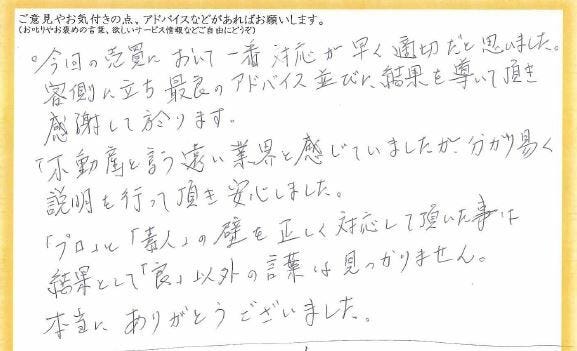 ご意見やお気付きの点、アドバイスなどがあればお願いします。
(お叱りやお褒めの言葉、欲しいサービス情報などご自由にどうぞ)
○今回の売買において一番対応が早く適切だと思いました。
客側に立ち最良のアドバイス並びに、結果を導いて頂き
感謝して於ります。
「不動産と言う遠い業界と感じていましたが、分かり易く
説明を行って頂き安心しました。
「プロ」と「素人」の壁を正しく対応して頂いた事は
結果として「良」以外の言葉は見つかりません。
本当にありがとうございました。